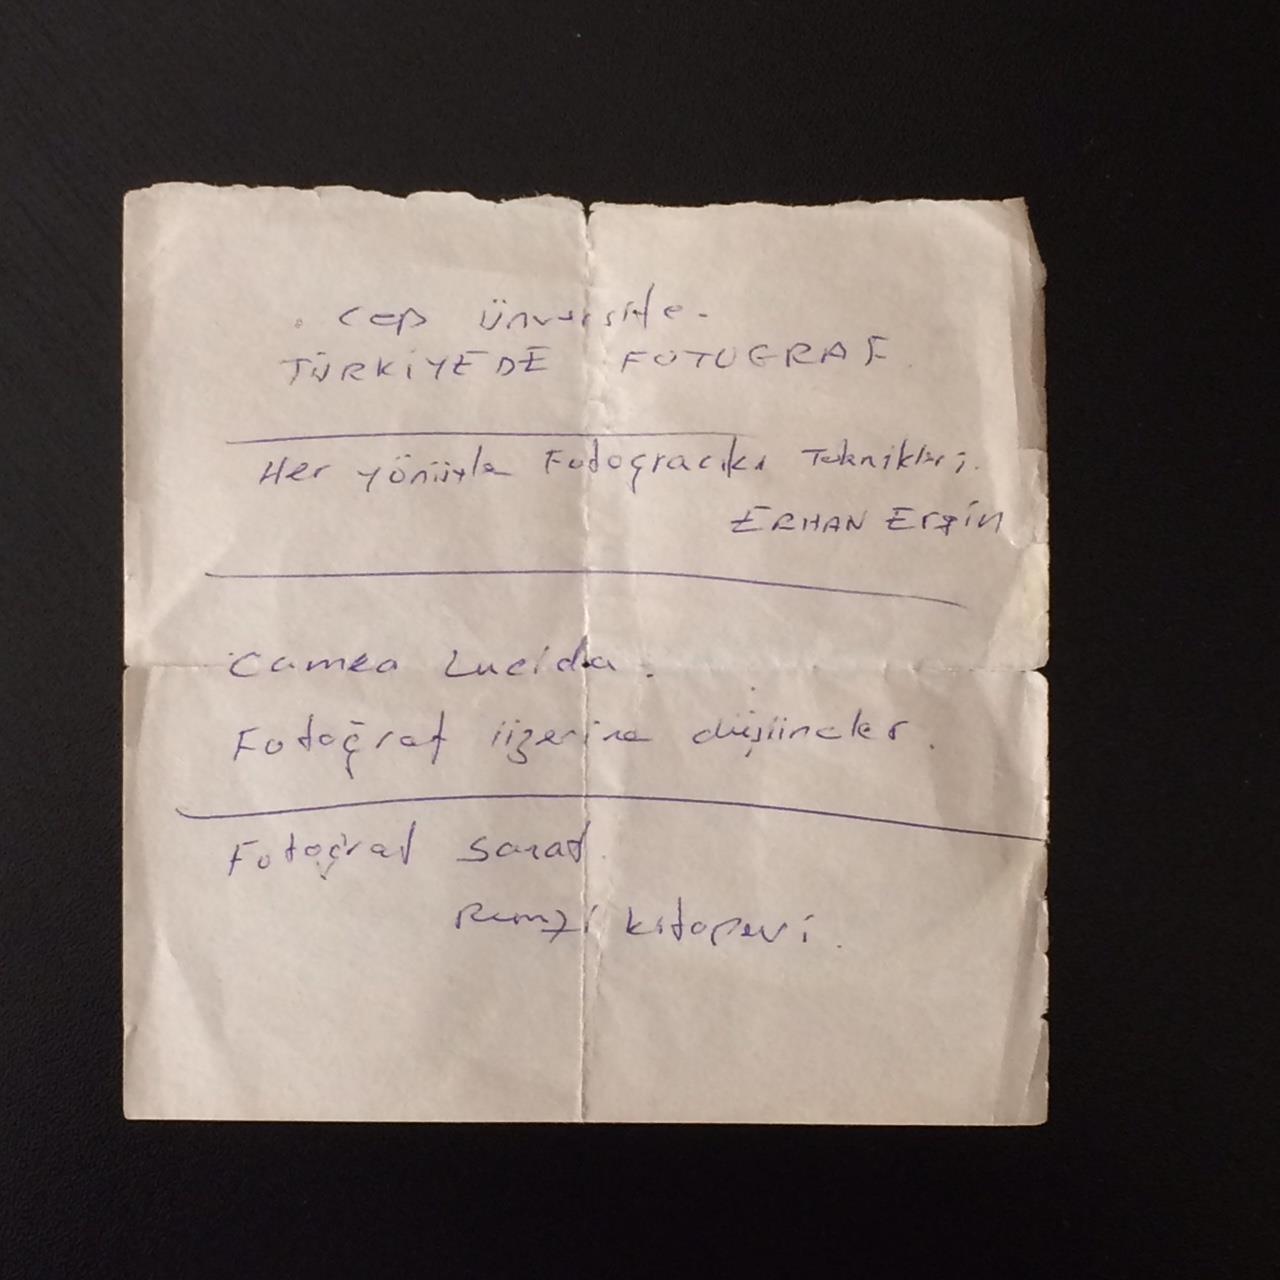 Cep Ünversite.
TÜRKİYEDE FOTOGRAF
Her yönüyle Fotogracıkı Teknikleri.
ERHAN Ergin
Camea Lucida.
Fotoğraf üzerine düşünceler.
Fotoğraf Sanat.
Remzi kitapevi.